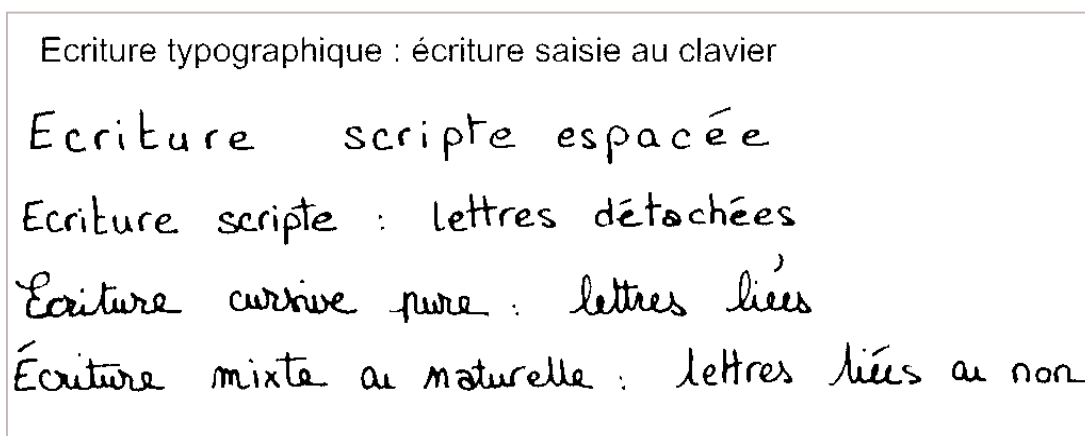 Ecriture typographique : écriture saisie au clavier
Ecriture scripte espacée
Ecriture scripte : lettres détachées
Ecriture cursive pure : lettres liées
Écriture mixte ou naturelle : lettres liées ou non